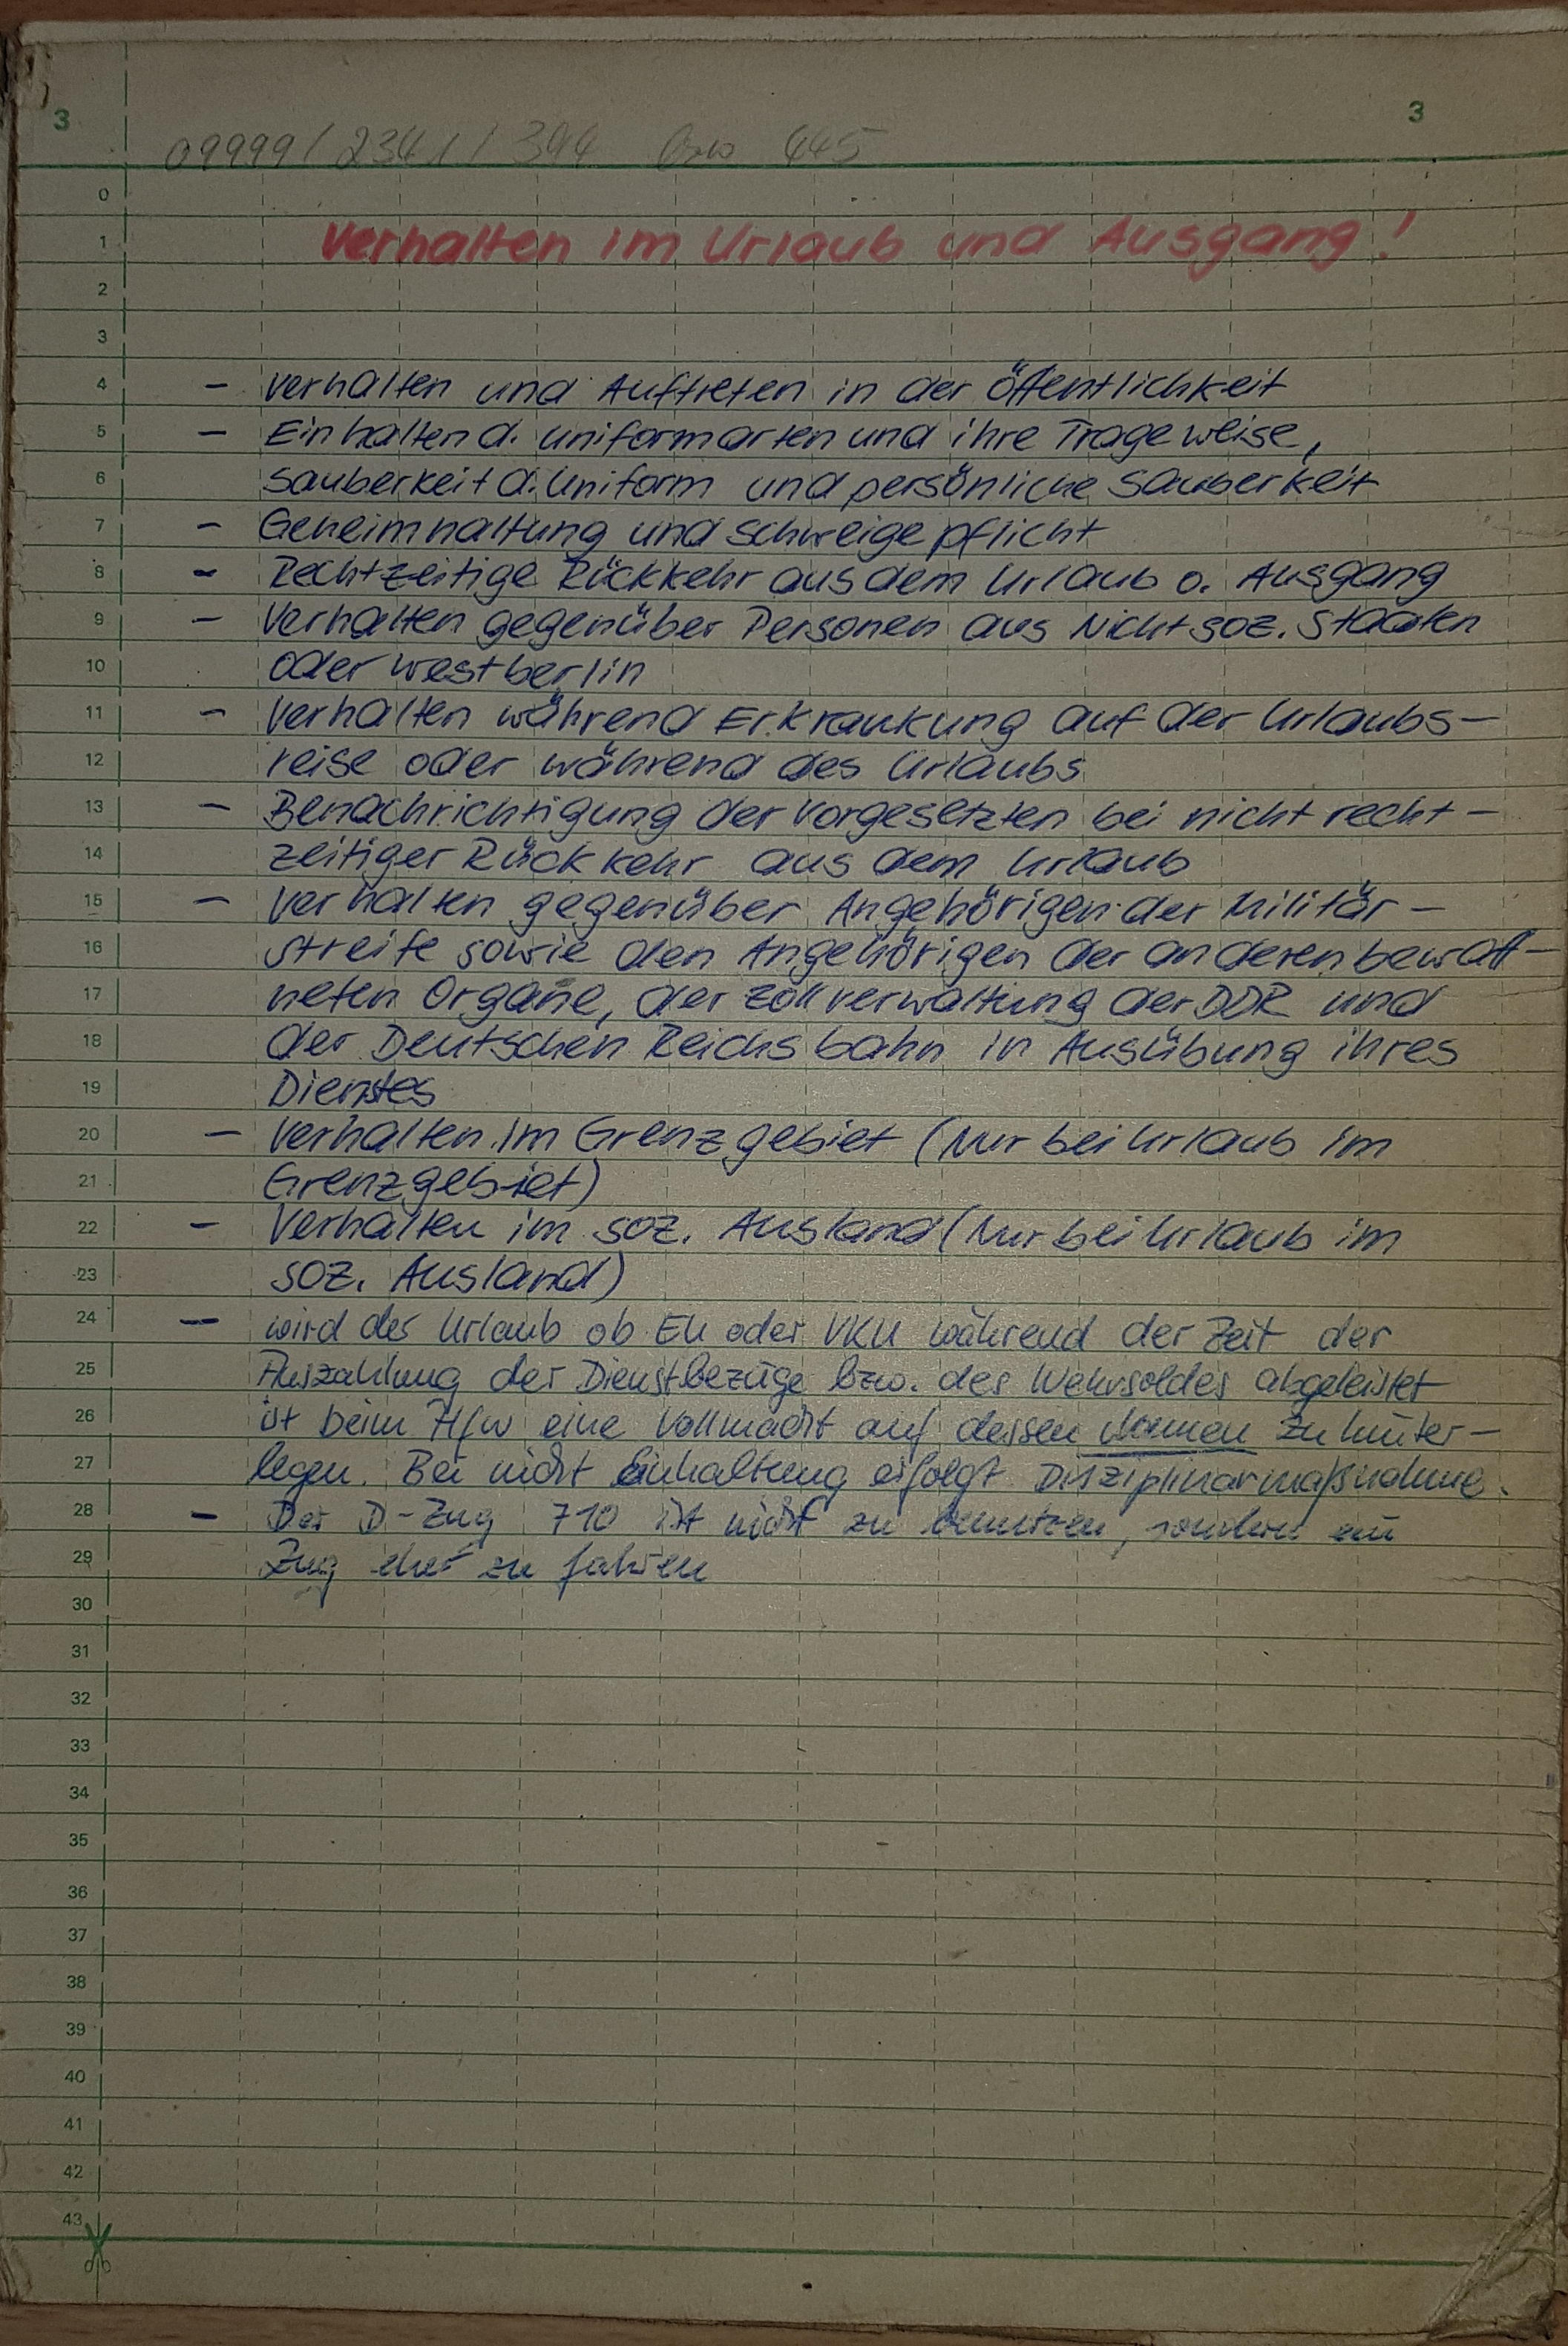 3 3
09999/2341/394 bzw 445
0
1 Verhalten im Urlaub und Ausgang!
2
3
4 – Verhalten und Auftreten in der Öffentlichkeit
5 – Einhalten d. Uniformarten und ihre Trageweise,
6 Sauberkeit d. Uniform und persönliche Sauberkeit
7 – Geheimhaltung und Schweigepflicht
8 – Rechtzeitige Rückkehr aus dem Urlaub o. Ausgang
9 – Verhalten gegenüber Personen aus Nichtsoz. Staaten
10 oder Westberlin
11 – Verhalten während Erkrankung auf der Urlaubs-
12 reise oder während des Urlaubs
13 – Benachrichtigung der Vorgesetzten bei nicht recht-
14 zeitiger Rückkehr aus dem Urlaub
15 – Verhalten gegenüber Angehörigen der Militär-
16 streife sowie den Angehörigen der anderen bewaff-
17 neten Organe, der Zollverwaltung der DDR und
18 der Deutschen Reichsbahn in Ausübung ihres
19 Dienstes
20 – Verhalten im Grenzgebiet (Nur bei Urlaub im
21 Grenzgebiet)
22 – Verhalten im soz. Ausland (Nur bei Urlaub im
23 soz. Ausland)
24 – wird der Urlaub ob EU oder VKU während der Zeit der
25 Auszahlung der Dienstbezüge bzw. des Wehrsoldes abgeleistet
26 ist beim Hfw eine Vollmacht auf dessen Namen zu hinter-
27 legen. Bei nicht Einhaltung erfolgt Disziplinarmaßnahme.
28 – Der D-Zug 710 ist nicht zu benutzen, sondern ein
29 Zug eher zu fahren
30
31
32
33
34
35
36
37
38
39
40
41
42
43